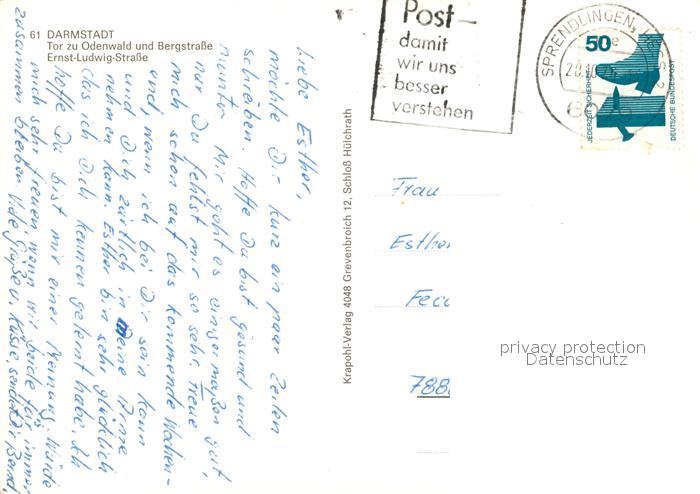 61 DARMSTADT
Tor zu Odenwald und Bergstraße
Ernst-Ludwig-Straße
Liebe Esther,
möchte Dir kurz ein paar Zeilen
schreiben. Hoffe Du bist gesund und
munter. Mir geht es einigermaßen gut,
nur Du fehlst mir so sehr. Freue
mich schon auf das kommende Wochen-
end wenn ich bei Dir sein kann
und Dich zärtlich in meine Arme
nehmen kann. Esther bin sehr glücklich
das ich Dich kennen gelernt habe. Ich
hoffe Du bist mir einer Meinung. Würde
mich sehr freuen, wenn wir beide für immer
zusammen bleiben. Viele Grüße u. Küsse, sendet Dir Bernd.
Krapohl-Verlag 4048 Grevenbroich 12, Schloß Hülchrath
Post-
damit
wir uns
besser
verstehen
SPRENDLINGEN,
50
JEDERZEIT SICHERHEIT
DEUTSCHE BUNDESPOST
Frau
Esther
Fec
788
privacy protection
Datenschutz